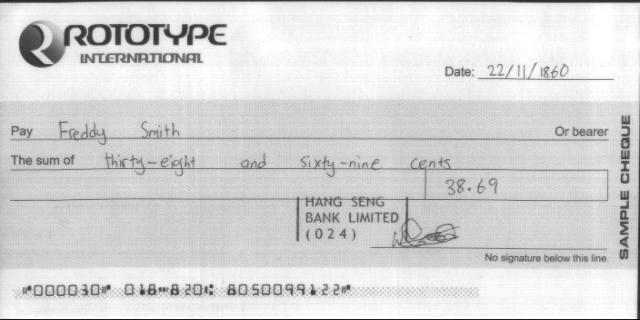 ROTOTYPE
INTERNATIONAL
Date: 22/11/1860
Pay Freddy Smith Or bearer
The sum of thirty-eight and sixty-nine cents
38.69
HANG SENG
BANK LIMITED
(024)
No signature below this line
SAMPLE CHEQUE
⑈000030⑈ 018⑉820⑆ 805009912 2⑈